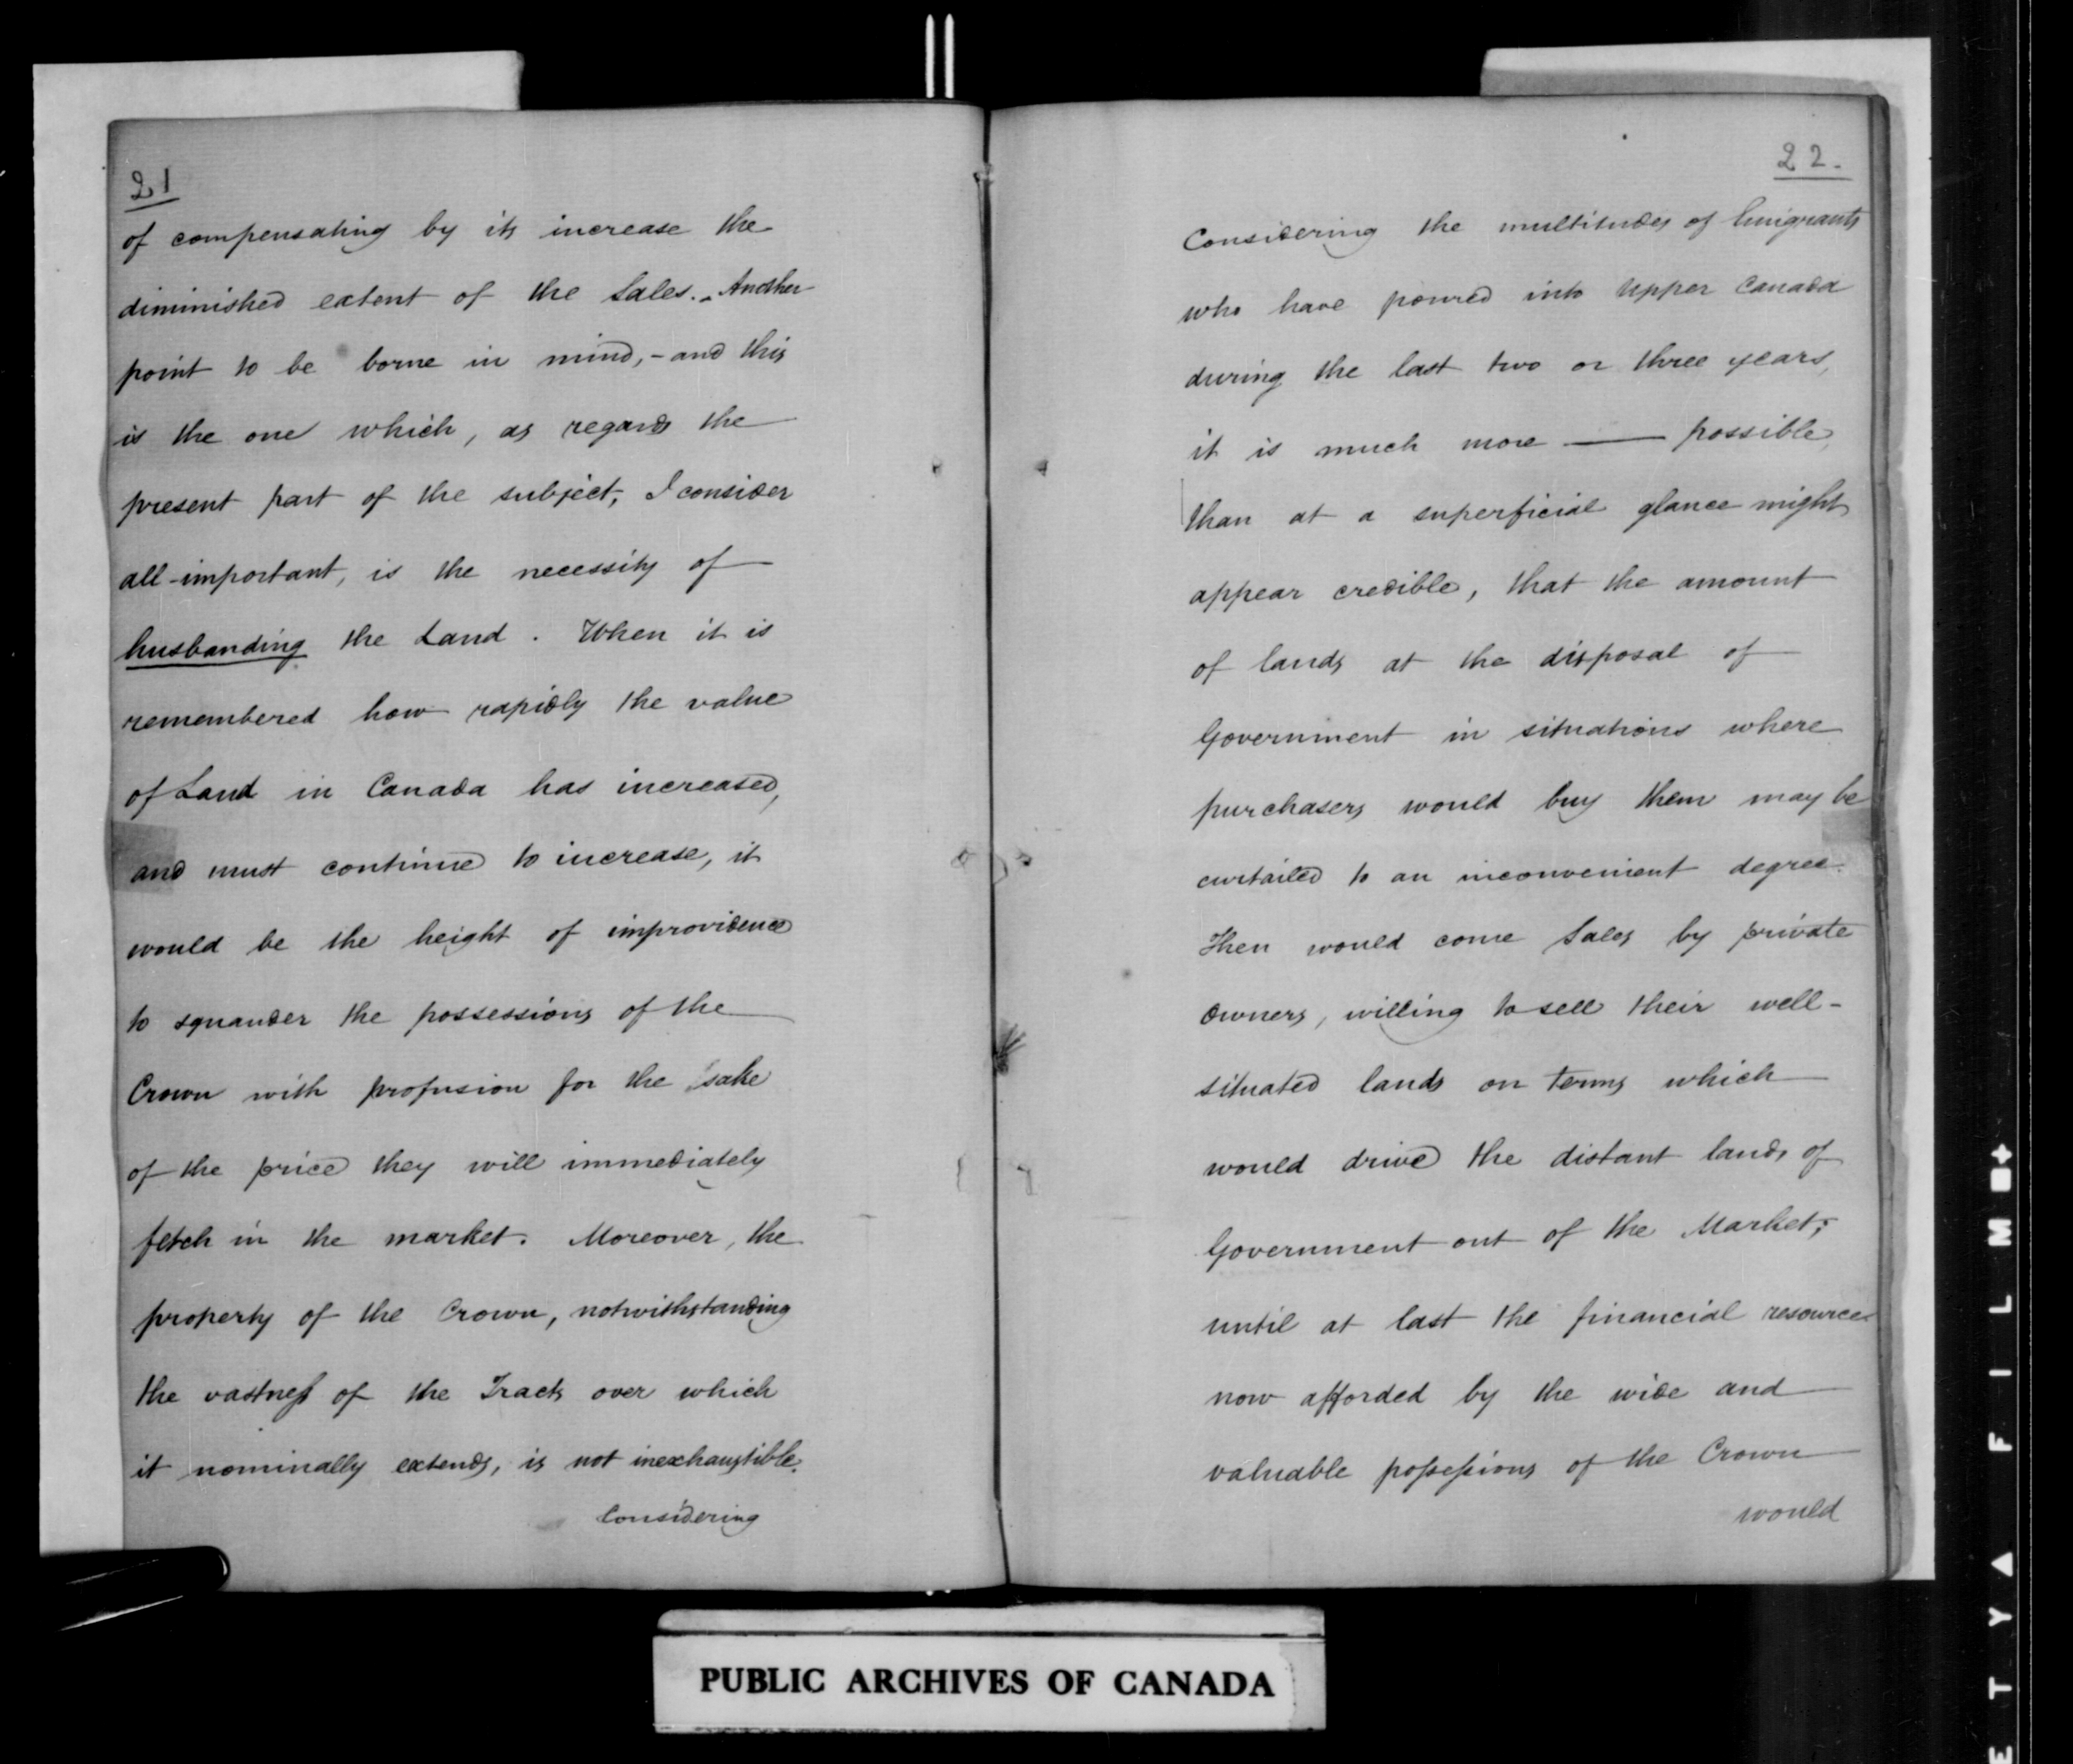 21
of compensating by its increase the
diminished extent of the Sales. Another
point to be borne in mind, - and this
is the one which, as regards the
present part of the subject, I consider
all-important, is the necessity of
husbanding the Land. When it is
remembered how rapidly the value
of Land in Canada has increased,
and must continue to increase, it
would be the height of improvidence
to squander the possessions of the
Crown with profusion for the sake
of the price they will immediately
fetch in the market. Moreover, the
property of the Crown, notwithstanding
the vastness of the Tracts over which
it nominally extends, is not inexhaustible.
Considering
22.
Considering the multitudes of Emigrants
who have poured into Upper Canada
during the last two or three years,
it is much more — possible,
than at a superficial glance might
appear credible, that the amount
of lands at the disposal of
Government in situations where
purchasers would buy them may be
curtailed to an inconvenient degree.
Then would come Sales by private
owners, willing to sell their well-
situated lands on terms which
would drive the distant lands of
Government out of the Market;
until at last the financial resources
now afforded by the wide and
valuable possessions of the Crown
would
PUBLIC ARCHIVES OF CANADA
E T Y ▲ F I L M